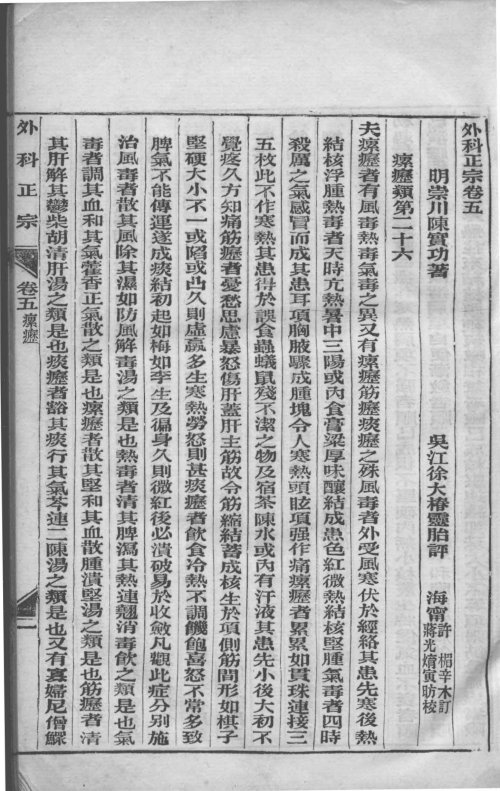 外科正宗卷五
明崇川陳實功著
吳江徐大椿靈胎評
海甯
許楣辛木訂
蔣光焴寅昉校
瘰癧類第二十六
夫瘰癧者有風毒熱毒氣毒之異又有瘰癧筋癧痰癧之殊風毒者外受風寒伏於經絡其患先寒後熱
結核浮腫熱毒者天時亢熱暑中三陽或內食膏粱厚味釀結成患色紅微熱結核堅腫氣毒者四時
殺厲之氣感冒而成其患耳項胸腋驟成腫塊令人寒熱頭眩項强作痛瘰癧者累累如貫珠連接三
五枚此不作寒熱其患得於誤食蟲蟻鼠殘不潔之物及宿茶陳水或內有汗液其患先小後大初不
覺疼久方知痛筋癧者憂愁思慮暴怒傷肝蓋肝主筋故令筋縮結蓄成核生於項側筋間形如棋子
堅硬大小不一或陷或凸久則虛羸多生寒熱勞怒則甚痰癧者飲食冷熱不調饑飽喜怒不常多致
脾氣不能傳運遂成痰結初起如梅如李生及徧身久則微紅後必潰破易於收斂凡觀此症分別施
治風毒者散其風除其濕如防風解毒湯之類是也熱毒者清其脾瀉其熱連翹消毒飲之類是也氣
毒者調其血和其氣藿香正氣散之類是也瘰癧者散其堅和其血散腫潰堅湯之類是也筋癧者清
其肝解其鬱柴胡清肝湯之類是也痰癧者豁其痰行其氣芩連二陳湯之類是也又有寡婦尼僧鰥
外科正宗
卷五 瘰癧
一